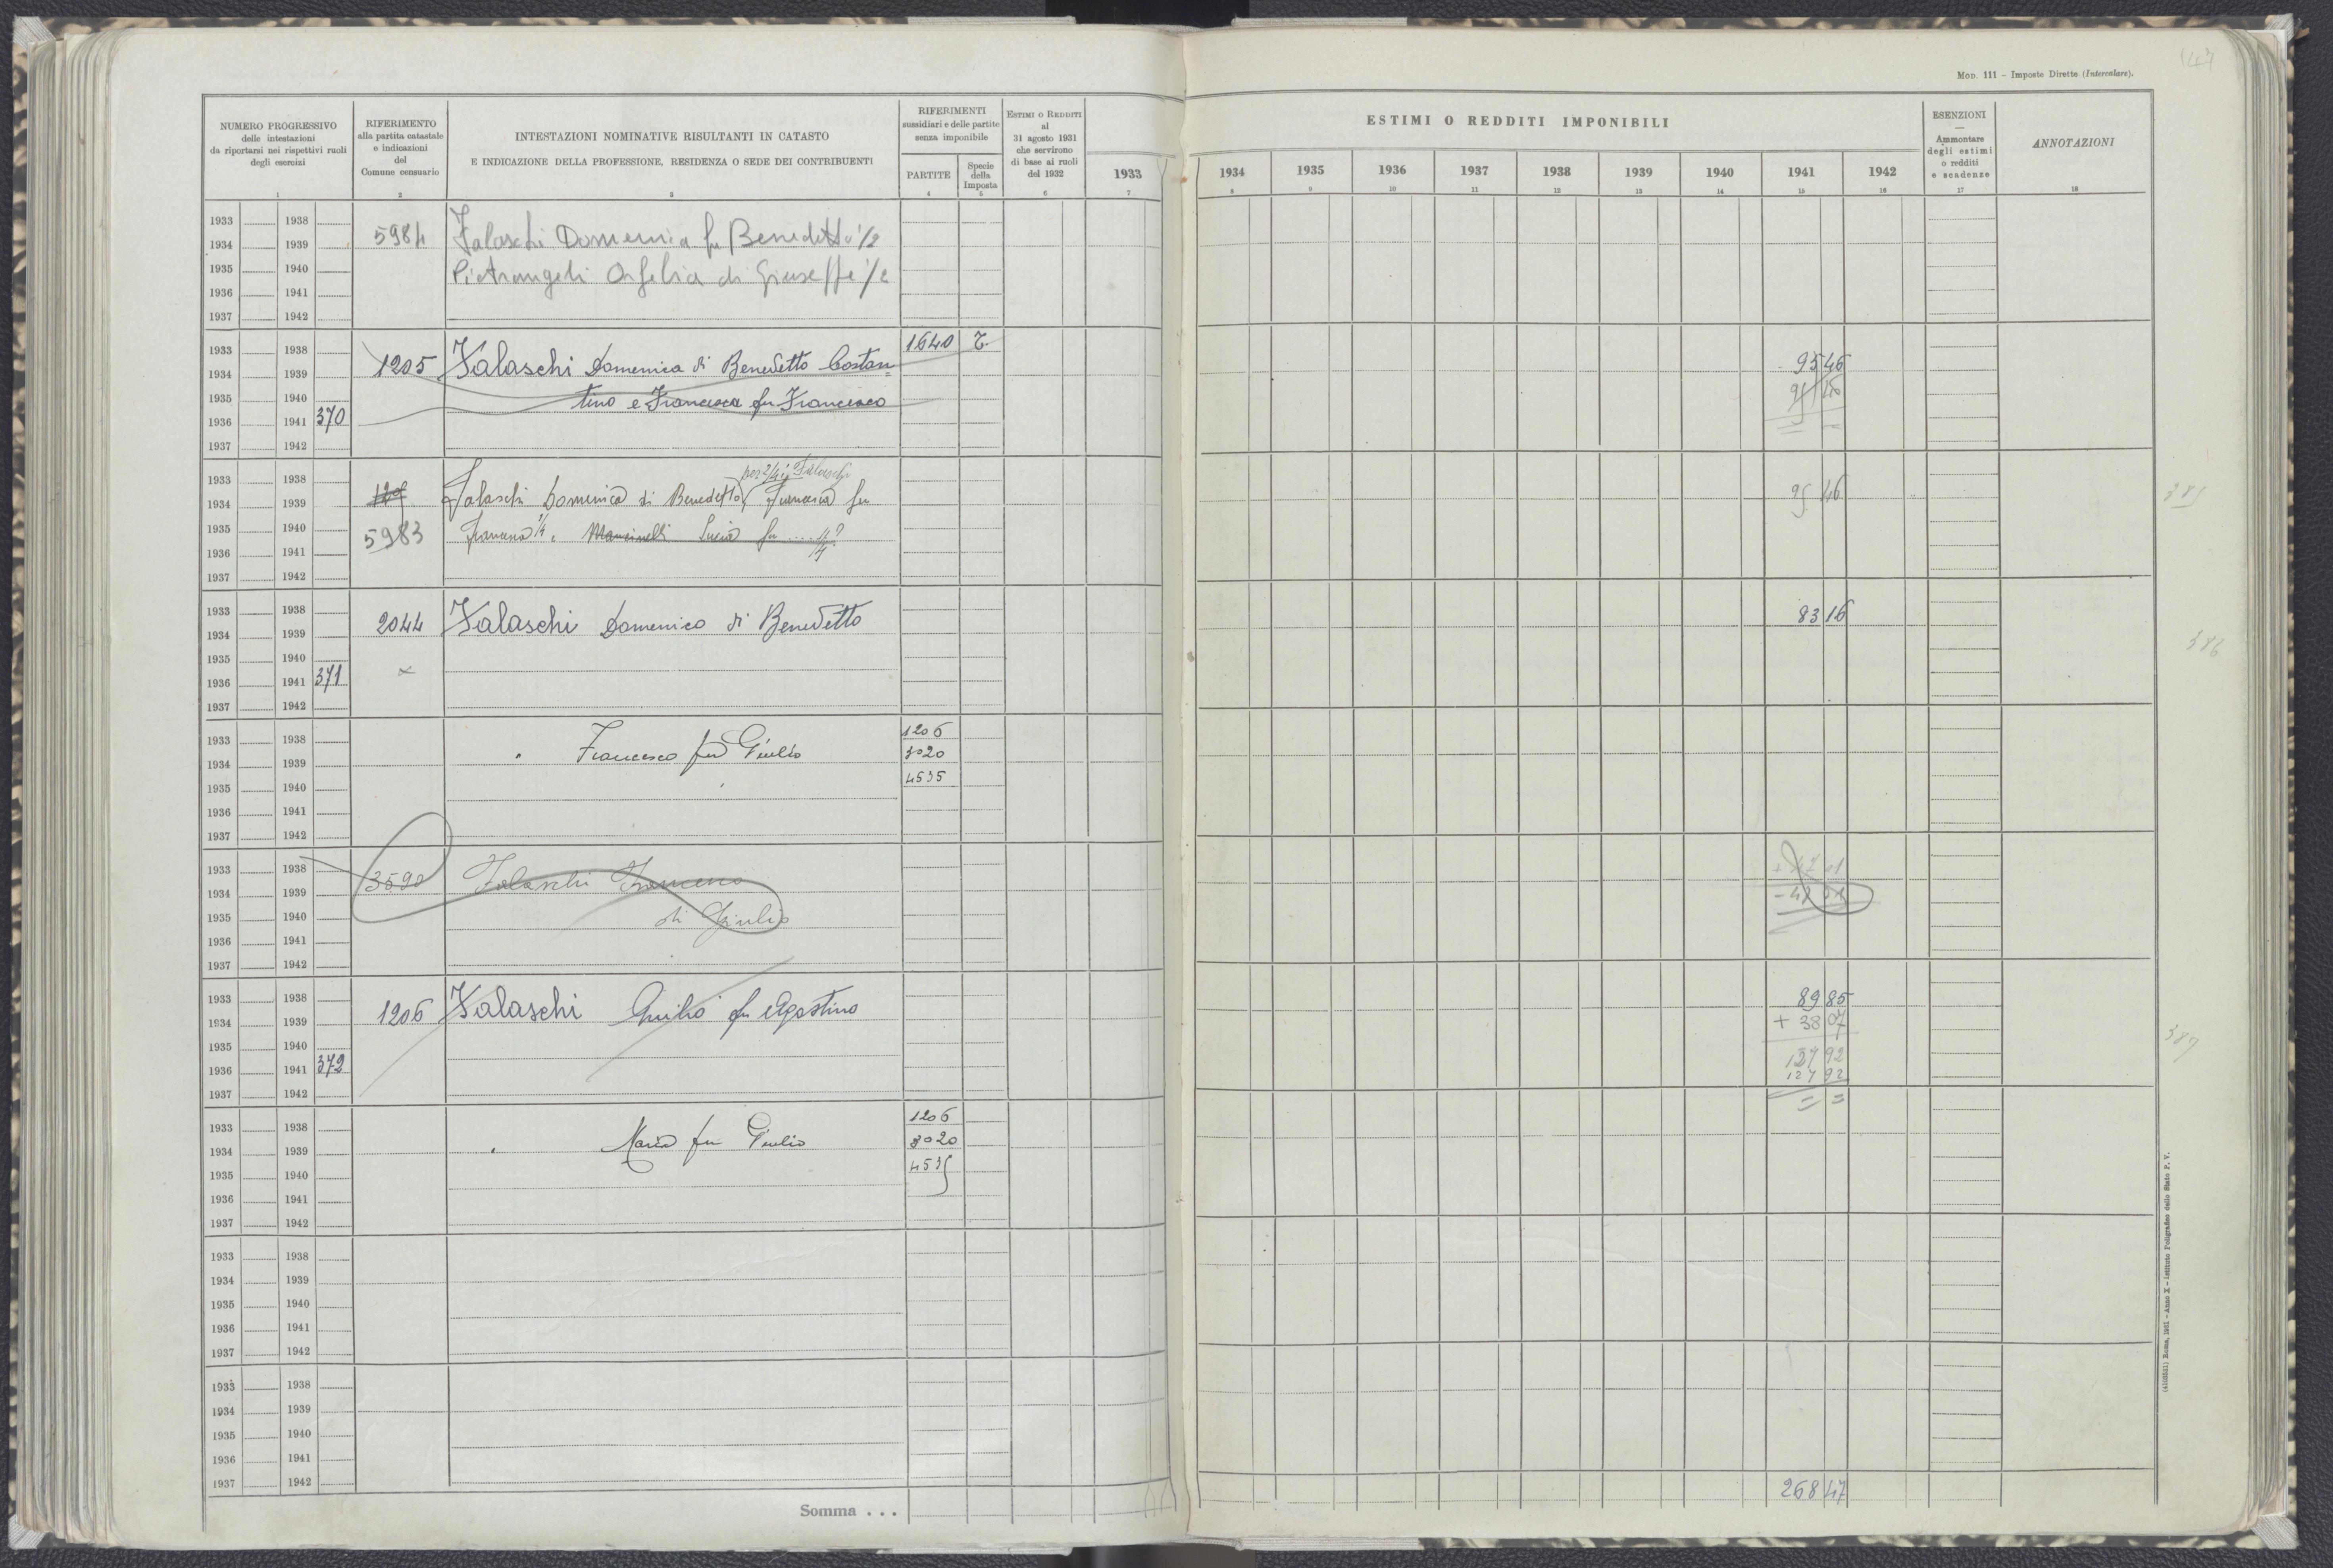 147
Mod. 111 - Imposte Dirette (Intercalare).
NUMERO PROGRESSIVO
delle intestazioni
da riportarsi nei rispettivi ruoli
degli esercizi
1
RIFERIMENTO
alla partita catastale
e indicazioni
del
Comune censuario
2
INTESTAZIONI NOMINATIVE RISULTANTI IN CATASTO
E INDICAZIONE DELLA PROFESSIONE, RESIDENZA O SEDE DEI CONTRIBUENTI
3
RIFERIMENTI
sussidiari e delle partite
senza imponibile
PARTITE
4
Specie
della
Imposta
5
ESTIMI O REDDITI
al
31 agosto 1931
che servirono
di base ai ruoli
del 1932
6
1933
7
ESTIMI O REDDITI IMPONIBILI
1934 1935 1936 1937 1938 1939 1940 1941 1942
8 9 10 11 12 13 14 15 16
ESENZIONI
—
Ammontare
degli estimi
o redditi
e scadenze
17
ANNOTAZIONI
18
1933 1938
1934 1939 5984 Falaschi Domenica fu Benedetto 1/2
1935 1940 Pietrangeli Orfelia di Giuseppe 1/2
1936 1941
1937 1942
1640 T.
1933 1938
1934 1939 1205 Falaschi Domenica di Benedetto Costan= 95 46
1935 1940 tino e Francesca fu Francesco
1936 1941 370
1937 1942
1933 1938 per 2/4 Falaschi
1934 1939 Falaschi Domenica di Benedetto, Francesca fu 95 46 385
1935 1940 5983 1/4 e Mancinelli Lucia fu .... 1/4?
1936 1941
1937 1942
1933 1938
1934 1939 2044 Falaschi Domenico di Benedetto 83 16
1935 1940 386
1936 1941 371 x
1937 1942
1933 1938 1206
1934 1939 " Francesco fu Giulio 3020
1935 1940 4535
1936 1941
1937 1942
1933 1938
1934 1939 3590 Falaschi Francesco
1935 1940 di Giulio
1936 1941
1937 1942
1933 1938 89 85
1934 1939 1206 Falaschi Giulio fu Agostino + 38 07
1935 1940 387
1936 1941 372 127 92
1937 1942 127 92
= =
1933 1938 1206
1934 1939 " Maria fu Giulio 3020
1935 1940 4535
1936 1941
1937 1942
1933 1938
1934 1939
1935 1940
1936 1941
1937 1942
1933 1938
1934 1939
1935 1940
1936 1941
1937 1942
Somma . . . 268 47
(4103521) Roma, 1931 - Anno X - Istituto Poligrafico dello Stato P. V.